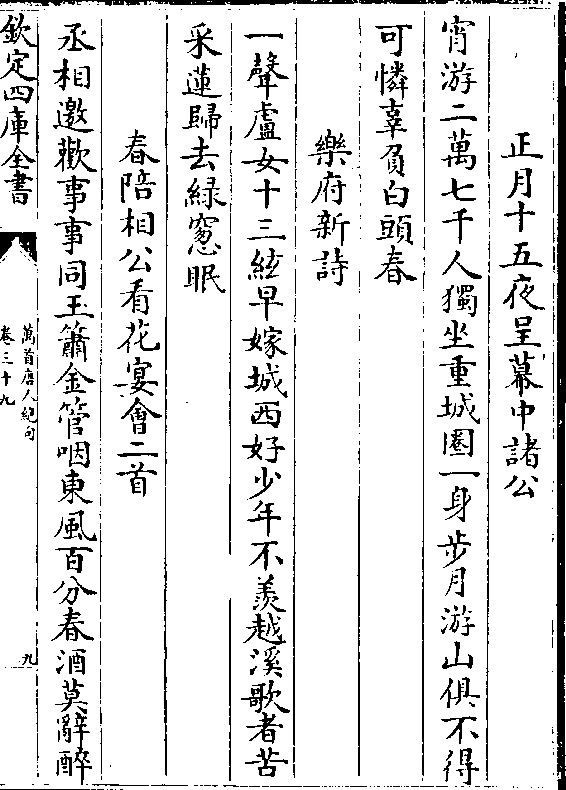 正月十五夜呈幕中諸公
宵游二萬七千人獨坐重城圈一身步月游山俱不得
可憐辜負白頭春
樂府新詩
一聲盧女十三絃早嫁城西好少年不羨越溪歌者苦
采蓮歸去緑窓眠
春陪相公看花宴會二首
丞相邀歡事事同玉簫金管咽東風百分春酒莫辭醉
欽定四庫全書
萬首唐人絶句
卷三十九
九